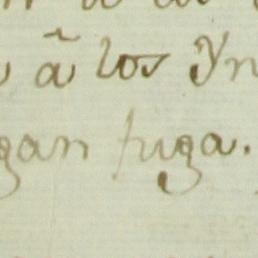 ã los Yn
gan fuga.